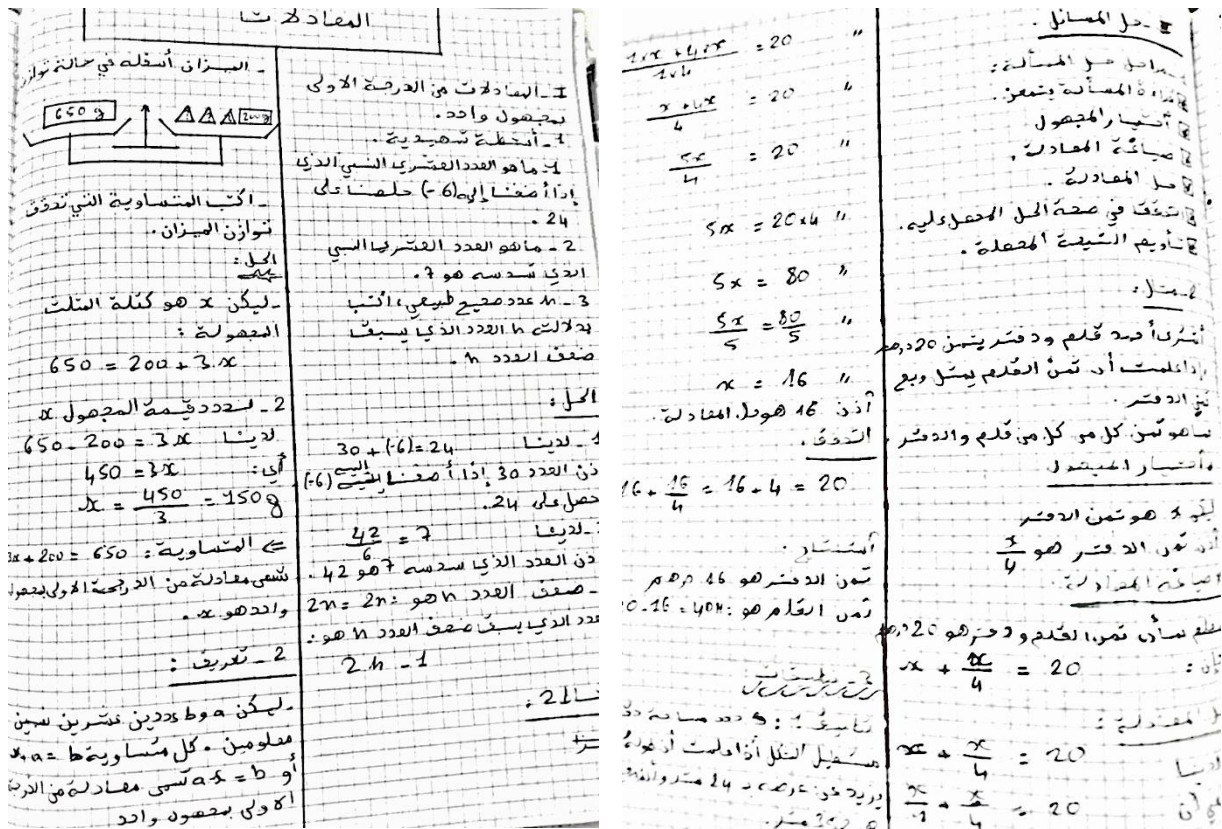 المعادلات
I - المعادلات من الدرجة الاولى
بمجهول واحد.
1 - أنشطة تمهيدية.
1 - ماهو العدد العشري النسبي الذي
إذا أضفنا إليه (6-) حلصنا على
24.
2 - ماهو العدد العشري النسبي
الذي سدسه هو 7.
3 - n عدد صحيح طبيعي، اكتب
بدلالة n العدد الذي يسبق
ضعف العدد n.
الحل:
لدينا 30 + (-6) = 24
العدد 30 إذا أضفنا إليه (-6)
على 24.
لدينا 42/6 = 7
العدد الذي سدسه 7 هو 42.
- ضعف العدد n هو: 2n = 2n
الذي يسبق ضعف العدد n هو:
2n - 1
- الميزان أسفله في حالة توازن
650 g
200g
- اكتب المتساوية التي تحقق
توازن الميزان.
الحل:
- ليكن x هو كتلة المثلث
المجهولة:
650 = 200 + 3x
2 - لنحدد قيمة المجهول x
لدينا 650 - 200 = 3x
أي: 450 = 3x
x = 450/3 = 150g
⇐ المتساوية: 3x + 200 = 650
تسمى معادلة من الدرجة الاولى بمجهول
واحد هو x.
2 - تعريف:
- ليكن a و b عددين عشريين نسبيين
معلومين. كل متساوية x + a = b
أو ax = b تسمى معادلة من الدرجة
الاولى بمجهول واحد
حل المسائل.
مراحل حل المسألة:
قراءة المسألة بتمعن.
اختيار المجهول
صياغة المعادلة.
حل المعادلة.
التحقق في صحة الحل المحصل عليه.
تأويل النتيجة المحصلة.
2 - مثال:
اشترى أحمد قلم ودفتر بثمن 20 درهم
إذا علمت أن ثمن القلم يمثل ربع
ثمن الدفتر.
ماهو ثمن كل من كل من قلم والدفتر.
اختيار المجهول
ليكن x هو ثمن الدفتر
ثمن الدفتر هو x/4
صياغة المعادلة:
أن ثمن القلم ودفتر هو 20 درهم
فإن: x + x/4 = 20
حل المعادلة:
لدينا x + x/4 = 20
x/1 + x/4 = 20
" 1×x + 4×x / 1×4 = 20
" x + 4x / 4 = 20
" 5x/4 = 20
" 5x = 20×4
" 5x = 80
" 5x/5 = 80/5
" x = 16
أذن 16 هو حل المعادلة.
التحقق.
16 + 16/4 = 16 + 4 = 20
استنتاج.
ثمن الدفتر هو 16 درهم
ثمن القلم هو:
3 - تطبيقات
مستطيل الشكل إذا علمت أن طوله
يزيد عن عرضه بـ 24 متر